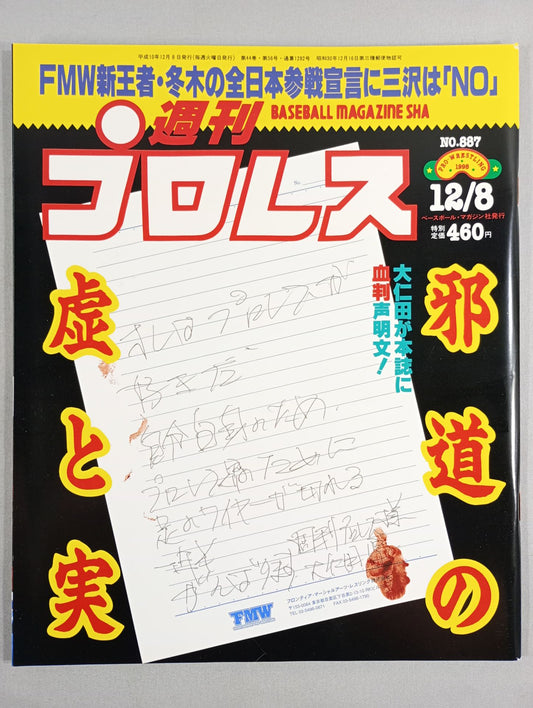 平成10年12月8日発行(毎週火曜日発行) 第44巻・第56号・通算1292号 昭和30年12月16日第三種郵便物認可
FMW新王者・冬木の全日本参戦宣言に三沢は「NO」
週刊
BASEBALL MAGAZINE SHA
プロレス
NO.887
PRO-WRESTLING
1998
12/8
ベースボール・マガジン社発行
特別定価460円
大仁田が本誌に
血判声明文!
邪道の
虚と実
No.
オレはプロレスが
好きだ
自分自身のため
プロレス界のために
足のワイヤーが切れる
がんばります
週刊プロレス様
大仁田
FMW
フロンティア・マーシャルアーツ・レスリング